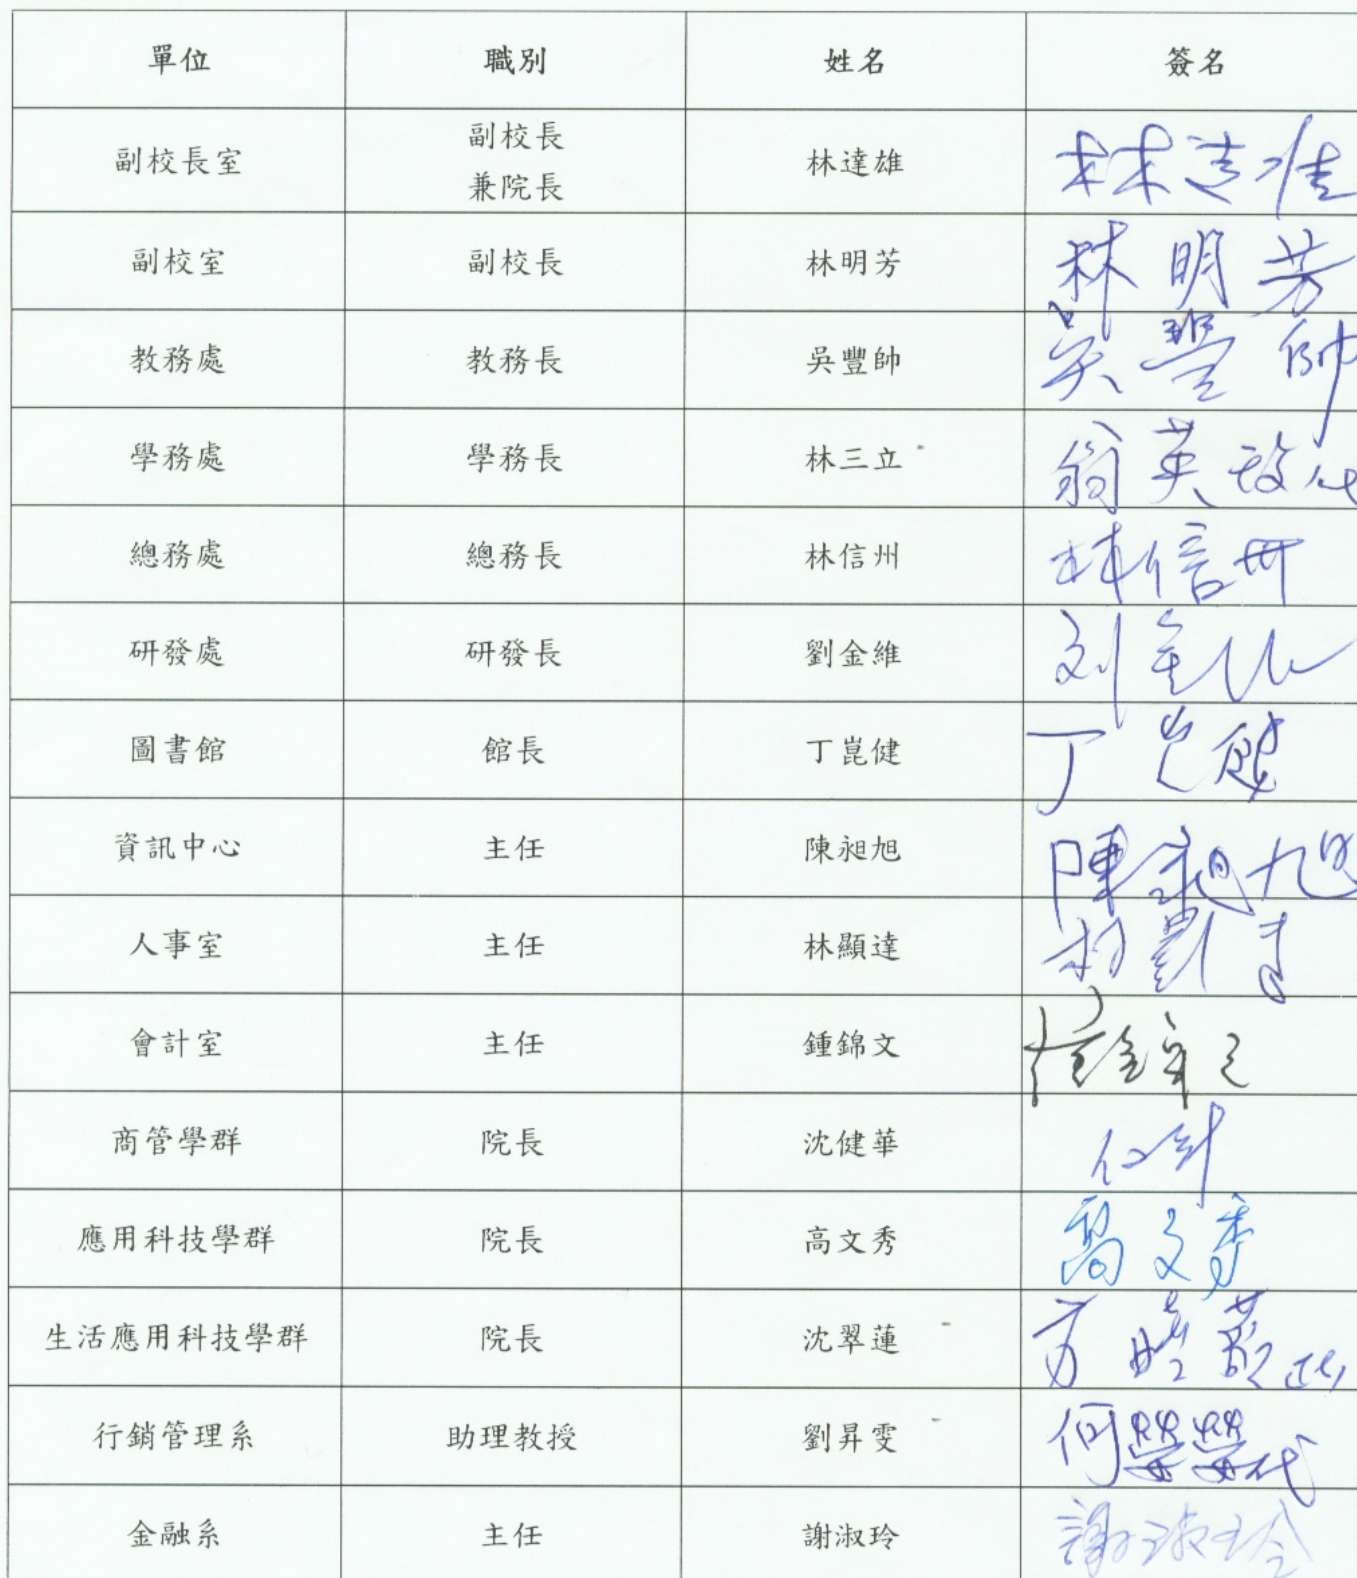 單位 職別 姓名 簽名
副校長室 副校長 兼院長 林達雄 林達雄
副校室 副校長 林明芳 林明芳
教務處 教務長 吳豐帥 吳豐帥
學務處 學務長 林三立 翁英
總務處 總務長 林信州 林信州
研發處 研發長 劉金維 刘金
圖書館 館長 丁崑健 丁
資訊中心 主任 陳昶旭 陳昶旭
人事室 主任 林顯達
會計室 主任 鍾錦文
商管學群 院長 沈健華
應用科技學群 院長 高文秀 高文秀
生活應用科技學群 院長 沈翠蓮
行銷管理系 助理教授 劉昇雯 何代
金融系 主任 謝淑玲 謝淑玲